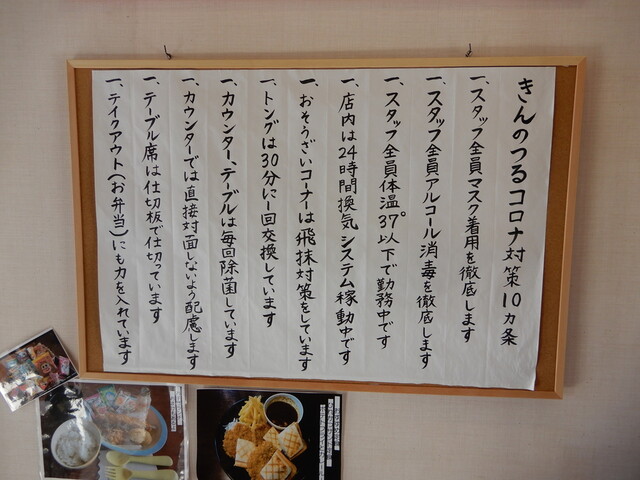 きんのつるコロナ対策10カ条
一、スタッフ全員マスク着用を徹底します
一、スタッフ全員アルコール消毒を徹底します
一、スタッフ全員体温37°以下で勤務中です
一、店内は24時間換気システム稼動中です
一、おそうざいコーナーは飛抹対策をしています
一、トングは30分に1回交換しています
一、カウンター、テーブルは毎回除菌しています
一、カウンターでは直接対面しないよう配慮します
一、テーブル席は仕切板で仕切っています
一、テイクアウト(お弁当)にも力を入れています